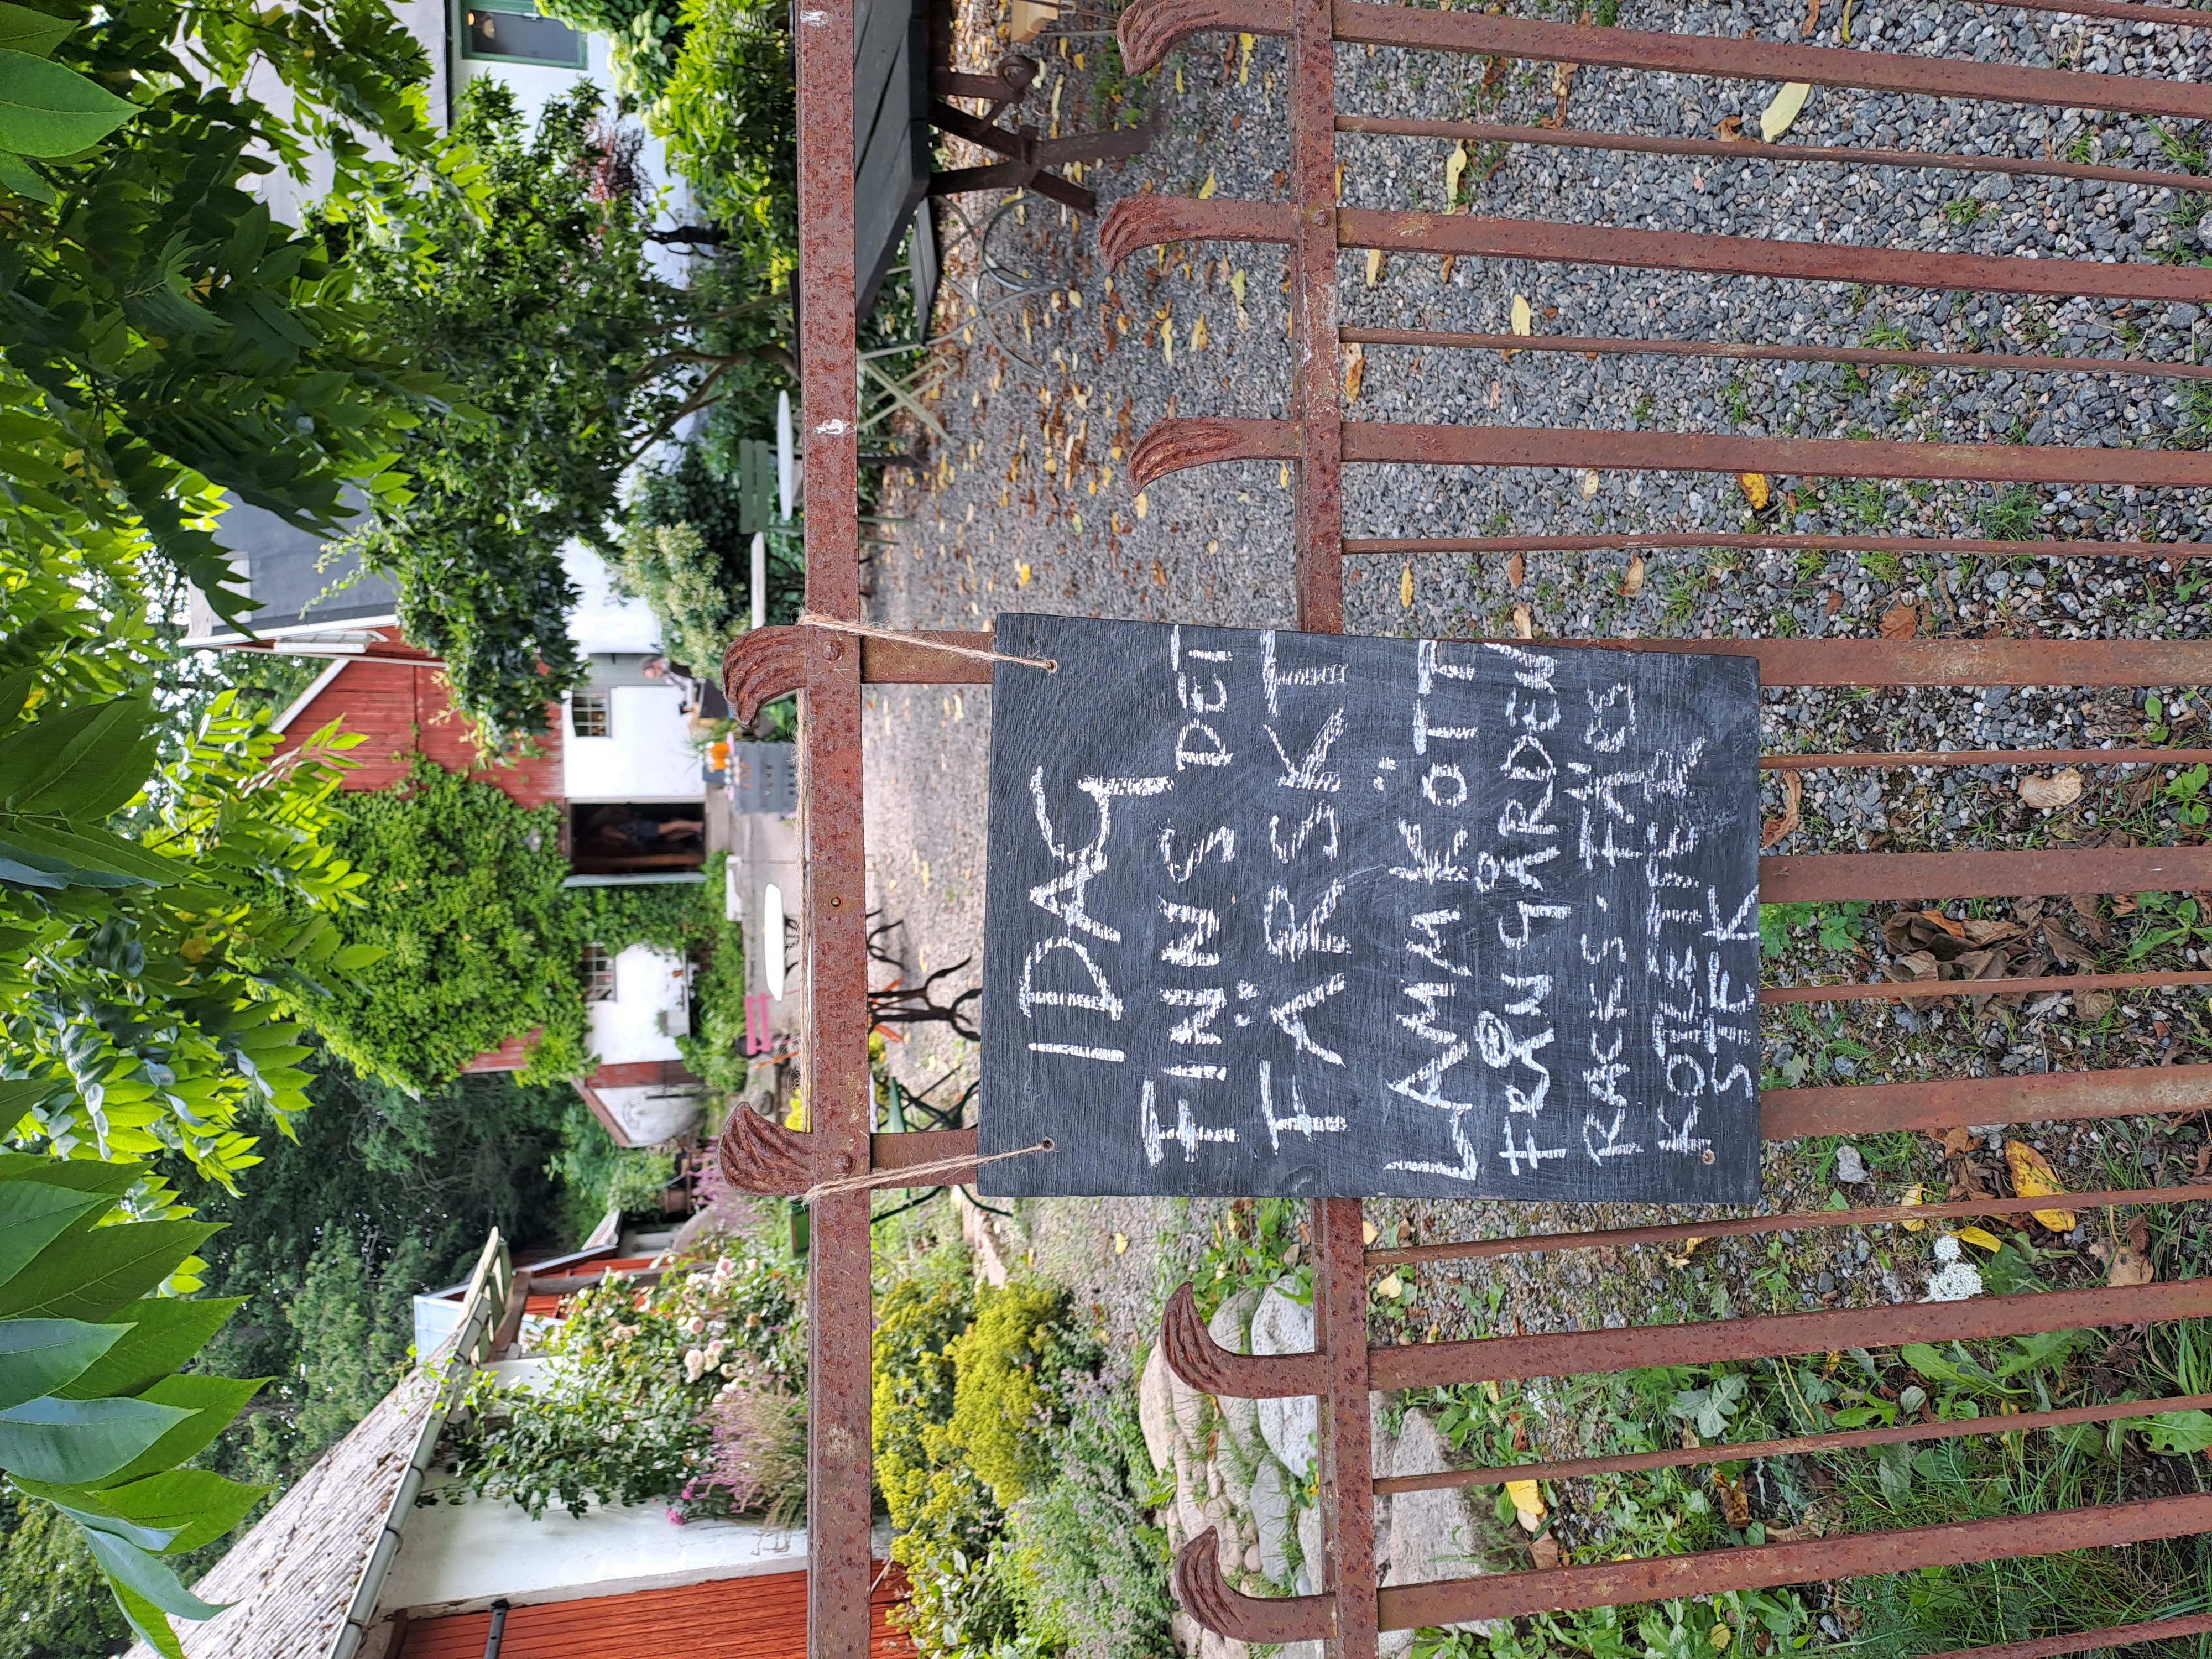 IDAG
FINNS DET
FÄRSKT
LAMMKÖTT
FRÅN GÅRDEN
RACKS, FÄRS
KOTLETTER
STEK